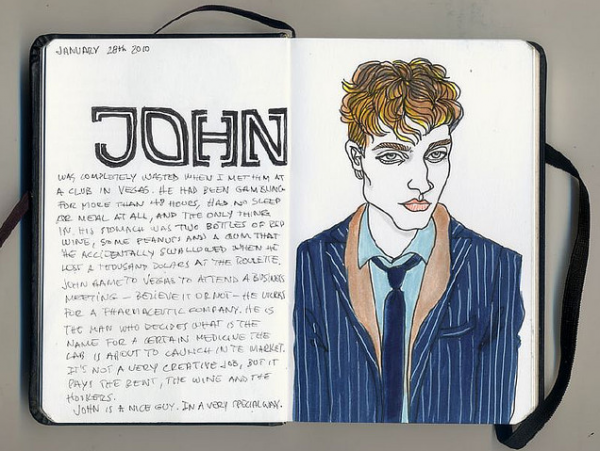 JANUARY 28th 2010
JOHN
WAS COMPLETELY WASTED WHEN I MET HIM AT
A CLUB IN VEGAS. HE HAD BEEN GAMBLING
FOR MORE THAN 48 HOURS, HAD NO SLEEP
OR MEAL AT ALL, AND THE ONLY THING
IN HIS STOMACH WAS TWO BOTTLES OF RED
WINE, SOME PEANUTS AND A GUM THAT
HE ACCIDENTALLY SWALLOWED WHEN HE
LOST A THOUSAND DOLLARS AT THE ROULETTE.
JOHN CAME TO VEGAS TO ATTEND A BUSINESS
MEETING – BELIEVE IT OR NOT – HE WORKS
FOR A PHARMACEUTIC COMPANY. HE IS
THE MAN WHO DECIDES WHAT IS THE
NAME FOR A CERTAIN MEDICINE THE
LAB IS ABOUT TO LAUNCH IN TE MARKET.
IT'S NOT A VERY CREATIVE JOB, BUT IT
PAYS THE RENT, THE WINE AND THE
HOOKERS.
JOHN IS A NICE GUY. IN A VERY SPECIAL WAY.